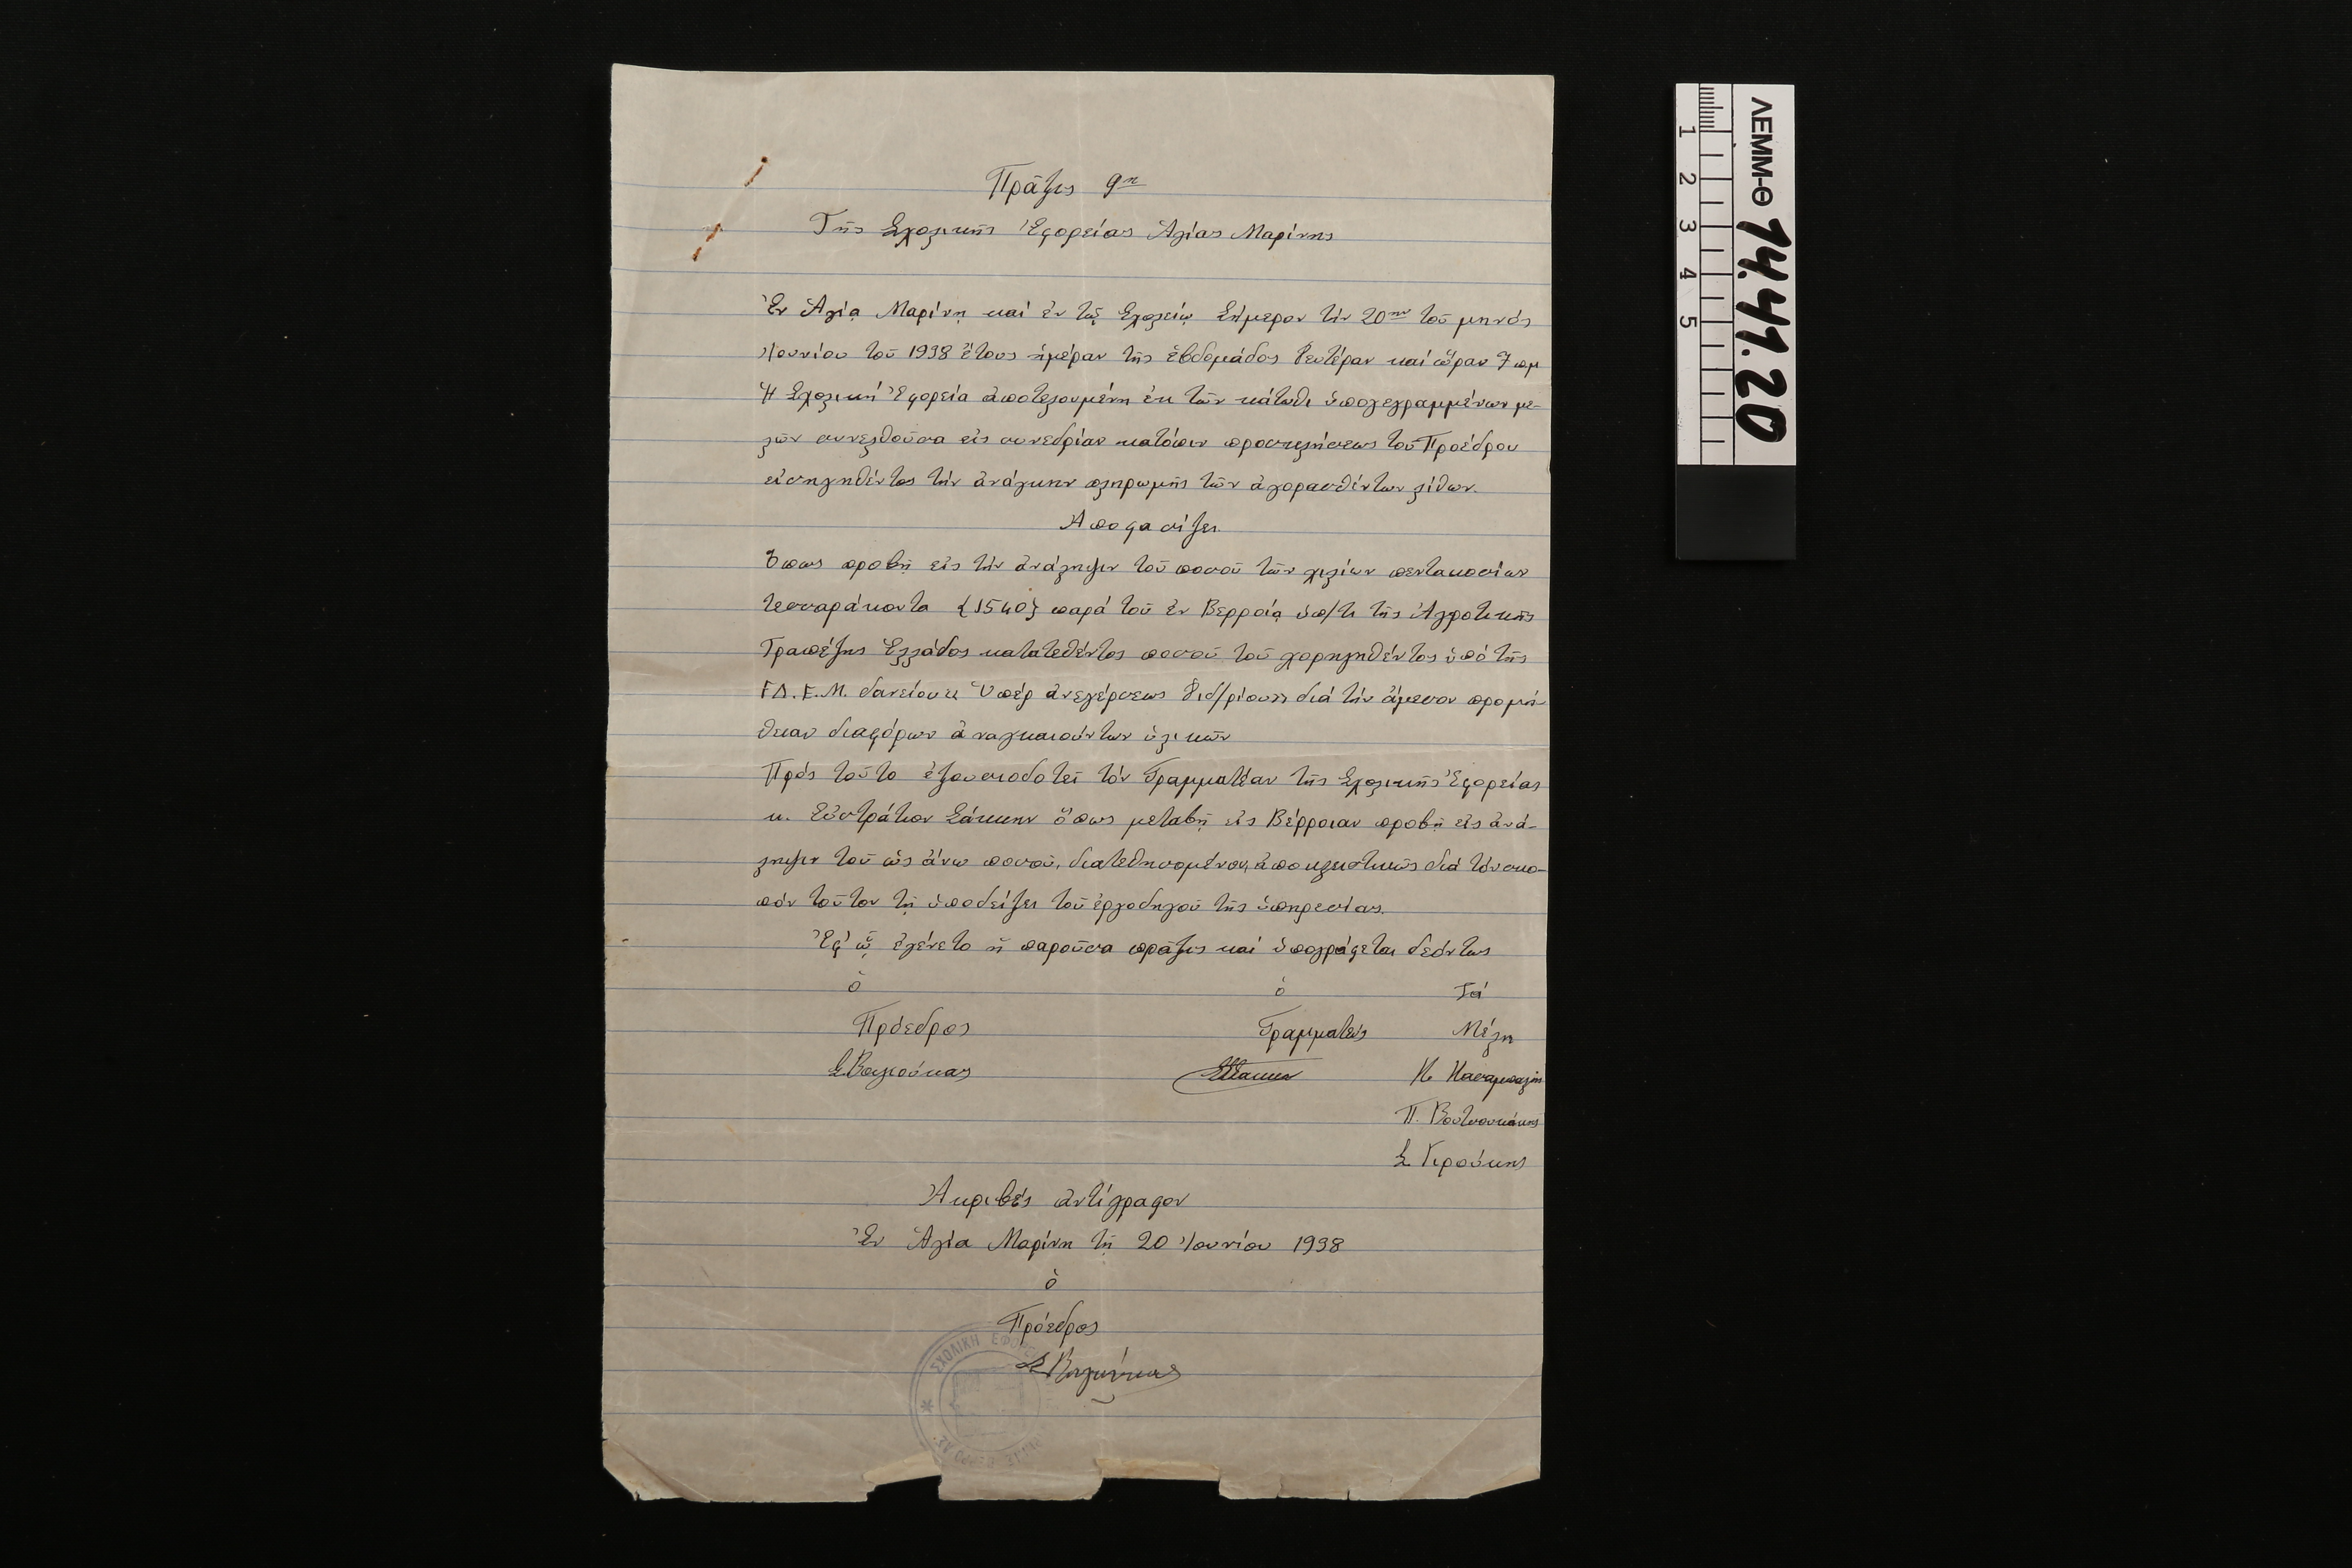 Πρᾶξις 9η
Τῆς Σχολικῆς Ἐφορείας Ἁγίας Μαρίνης
Ἐν Ἁγίᾳ Μαρίνῃ καί ἐν τῷ Σχολείῳ Σήμερον τήν 20ην τοῦ μηνός
Ἰουνίου τοῦ 1938 ἔτους ἡμέραν τῆς ἑβδομάδος Δευτέραν καί ὥραν 7 πμ
Ἡ Σχολική Ἐφορεία ἀποτελουμένη ἐκ τῶν κάτωθι ὑπογεγραμμένων με-
λῶν συνελθοῦσα εἰς συνεδρίαν κατόπιν προσκλήσεως τοῦ Προέδρου
εἰσηγηθέντος τήν ἀνάγκην πληρωμῆς τῶν ἀγορασθέντων λίθων.
Αποφασίζει.
Ὅπως προβῇ εἰς τήν ἀνάληψιν τοῦ ποσοῦ τῶν χιλίων πεντακοσίων
τεσσαράκοντα {1540} παρά τοῦ ἐν Βερροίᾳ ὑπ/τι τῆς Ἀγροτικῆς
Τραπέζης Ἑλλάδος κατατεθέντος ποσοῦ τοῦ χορηγηθέντος ὑπό τῆς
ΓΔ.Ε.Μ. δανείου " Ὑπέρ ἀνεγέρσεως Διδ/ρίου" διά τήν ἄμεσον προμή-
θειαν διαφόρων ἀναγκαιούντων ὑλικῶν
Πρός τοῦτο ἐξουσιοδοτεῖ τόν Γραμματέαν τῆς Σχολικῆς Ἐφορείας
κ. Εὐστράτιον Σάκκην ὅπως μεταβῇ εἰς Βέρροιαν προβῇ εἰς ἀνά-
ληψιν τοῦ ὡς ἄνω ποσοῦ, διατεθησομένου, ἀποκλειστικῶς διά τόν σκο-
πόν τοῦτον τῇ ὑποδείξει τοῦ ἐργοδηγοῦ τῆς ὑπηρεσίας.
Ἐφ' ᾧ ἐγένετο ἡ παροῦσα πρᾶξις καί ὑπογράφεται δεόντως
ὁ ὁ Τά
Πρόεδρος Γραμματεύς Μέλη
Σ. Βαγιούκας
Π. Βουτσουκάκης
Σ. Γιρούκης
Ἀκριβές ἀντίγραφον
Ἐν Ἁγία Μαρίνῃ τῇ 20 Ἰουνίου 1938
ὁ
Πρόεδρος
Σ Βαγιούκας
ΣΧΟΛΙΚΗ ΕΦΟΡΕΙΑ
ΛΕΜΜ-Θ 14.41.20
1 2 3 4 5